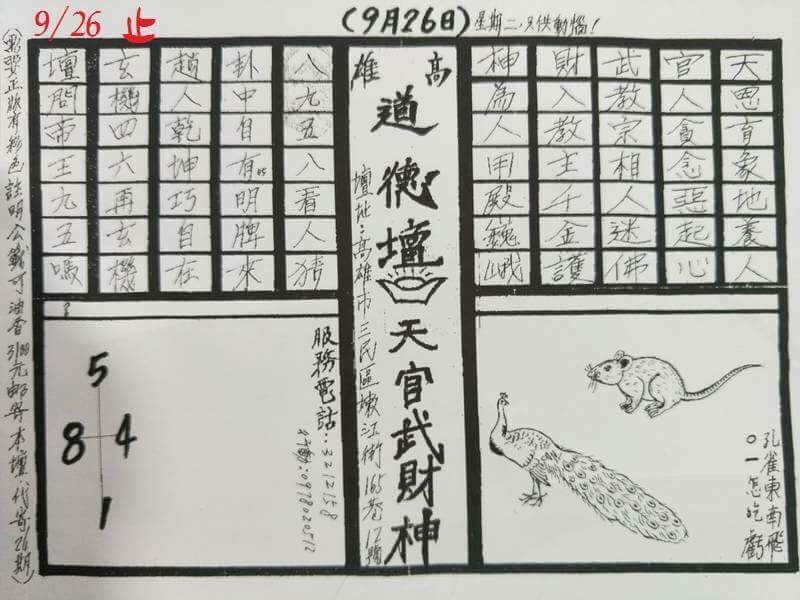 9/26 止
(9月26日)星期二,只供動惱!
天恩育象地養人
官人貪念惡起心
武教宗相人迷佛
財入教主千金護
神為人用殿巍峨
孔雀東南飛
0一怎吃虧
高雄
道德壇 天官武財神
壇址:高雄市三民區嫩江街165巷12號
八九五八看人猜
卦中自有明牌來
趙人乾坤巧自在
玄機四六再玄機
壇問帝王九五嗎
?
服務電話:3212158
行動:0978020512
5
8 4
1
要正版有彩色註明公籤可油香3100元郵寄本壇,代寄26期)